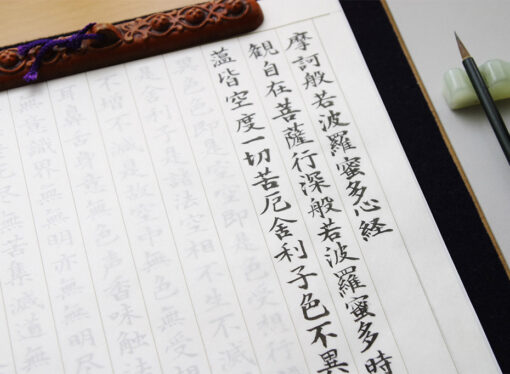 摩訶般若波羅蜜多心経
観自在菩薩行深般若波羅蜜多時
蘊皆空度一切苦厄舎利子色不異
異色色即是空空即是色受想行
是舎利子是諸法空相不生不滅
不増不減是故空中無色無受想
耳鼻舌身意無色声香味触法
識界無無明亦無無明尽
尽無苦集滅道無